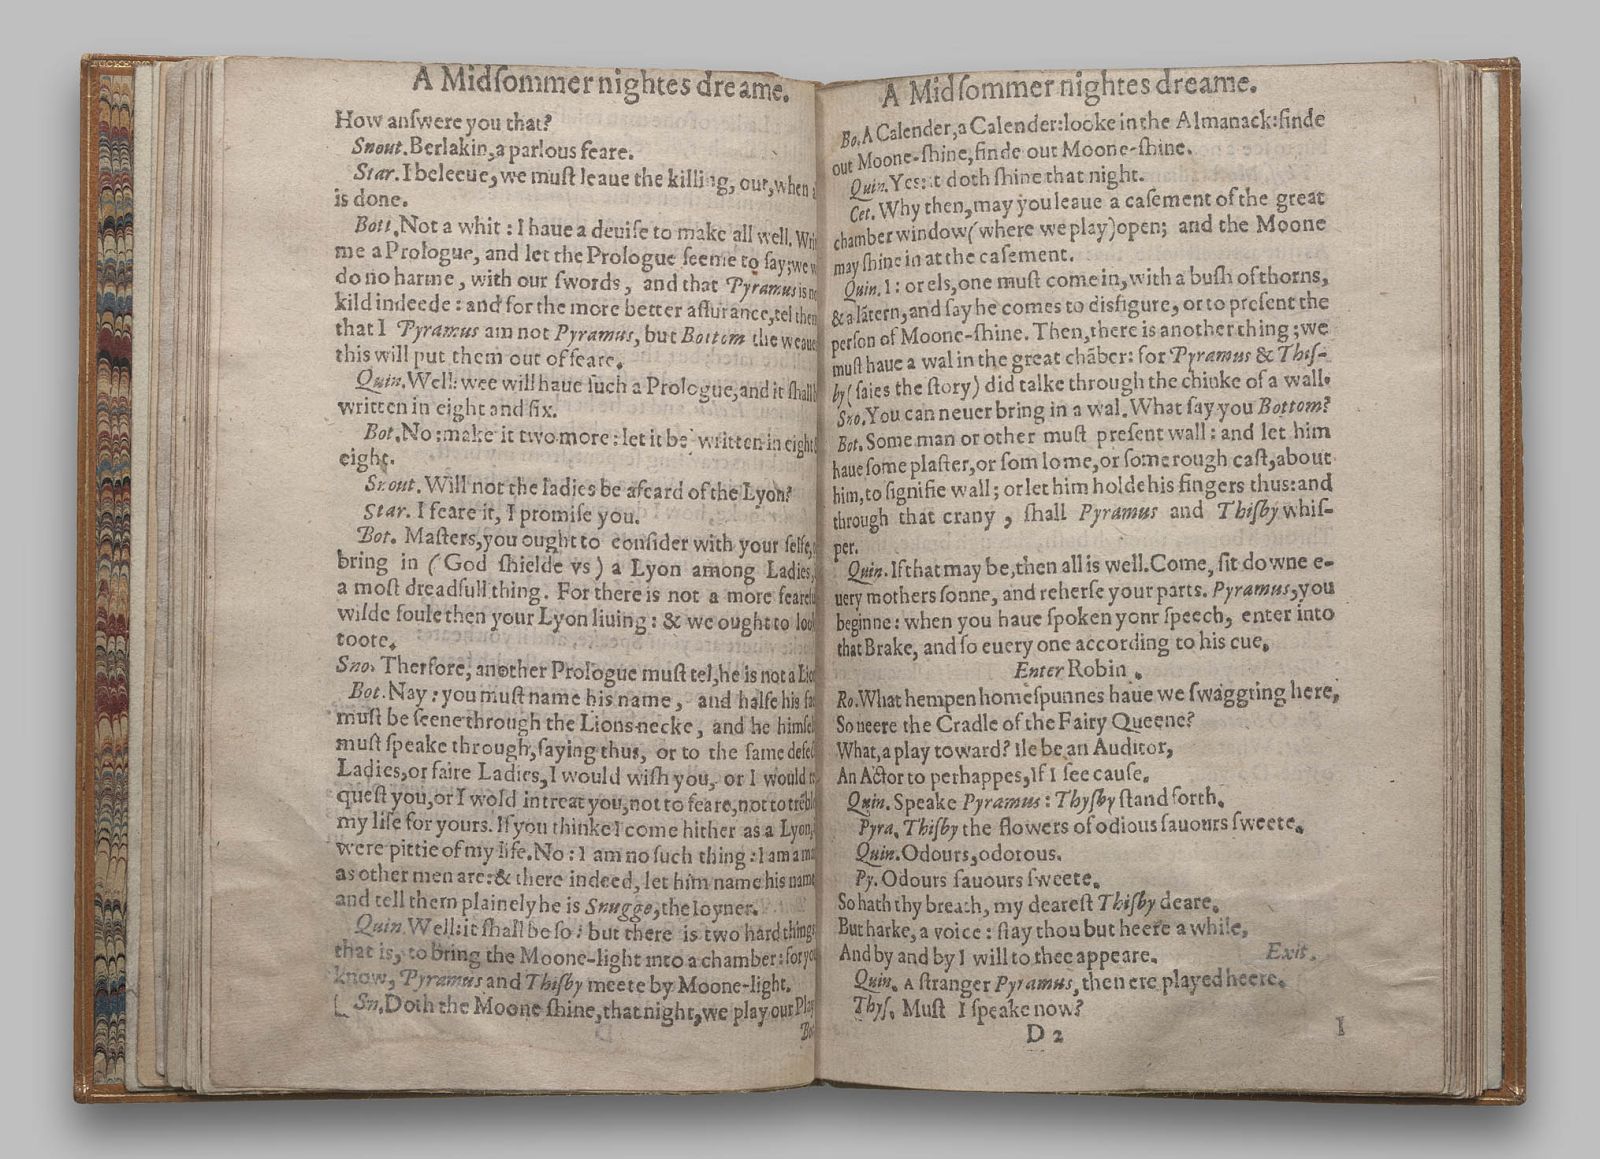 A Midſommer nightes dreame.
How anſwere you that?
Snout. Berlakin, a parlous feare.
Star. I beleeue, we muſt leaue the killing, out, when
is done.
Bott. Not a whit: I haue a deuiſe to make all well.
me a Prologue, and let the Prologue ſeeme to ſay; we
do no harme, with our ſwords, and that Pyramus is
kild indeede: and for the more better aſſurance, tel
that I Pyramus am not Pyramus, but Bottom the
this will put them out of feare.
Quin. Well: wee will haue ſuch a Prologue, and it
written in eight and ſix.
Bot. No: make it two more: let it be written in eight
eight.
Snout. Will not the ladies be afeard of the Lyon?
Star. I feare it, I promiſe you.
Bot. Maſters, you ought to conſider with your ſelfe,
bring in (God ſhielde vs) a Lyon among Ladies,
a moſt dreadfull thing. For there is not a more
wilde foule then your Lyon liuing: & we ought to
toote.
Sno. Therfore, another Prologue muſt tel, he is not a
Bot. Nay: you muſt name his name, and halfe his
muſt be ſeene through the Lions necke, and he
muſt ſpeake through, ſaying thus, or to the ſame
Ladies, or faire Ladies, I would wiſh you, or I would
queſt you, or I wold intreat you, not to feare, not to
my life for yours. If you thinke I come hither as a Lyon,
were pittie of my life. No: I am no ſuch thing: I am a
as other men are: & there indeed, let him name his name
and tell them plainely he is Snugge, the ioyner.
Quin. Well: it ſhall be ſo: but there is two hard things
that is, to bring the Moone-light into a chamber: for
know, Pyramus and Thiſby meete by Moone-light.
Sn. Doth the Moone ſhine, that night, we play our
A Midſommer nightes dreame.
Bo. A Calender, a Calender: looke in the Almanack: finde
out Moone-ſhine, finde out Moone-ſhine.
Quin. Yes: it doth ſhine that night.
Cet. Why then, may you leaue a caſement of the great
chamber window (where we play) open; and the Moone
may ſhine in at the caſement.
Quin. I: or els, one muſt come in, with a buſh of thorns,
& a lātern, and ſay he comes to diſfigure, or to preſent the
perſon of Moone-ſhine. Then, there is another thing; we
muſt haue a wal in the great chāber: for Pyramus & Thiſ-
by (ſaies the ſtory) did talke through the chinke of a wall.
Sno. You can neuer bring in a wal. What ſay you Bottom?
Bot. Some man or other muſt preſent wall: and let him
haue ſome plaſter, or ſom lome, or ſome rough caſt, about
him, to ſignifie wall; or let him holde his fingers thus: and
through that crany, ſhall Pyramus and Thiſby whiſ-
per.
Quin. If that may be, then all is well. Come, ſit downe e-
uery mothers ſonne, and reherſe your parts. Pyramus, you
beginne: when you haue ſpoken yonr ſpeech, enter into
that Brake, and ſo euery one according to his cue.
Enter Robin.
Ro. What hempen homeſpunnes haue we ſwaggring here,
So neere the Cradle of the Fairy Queene?
What, a play toward? Ile be an Auditor,
An Actor to perhappes, If I ſee cauſe.
Quin. Speake Pyramus: Thyſby ſtand forth.
Pyra. Thiſby the flowers of odious ſauours ſweete.
Quin. Odours, odorous.
Py. Odours ſauours ſweete.
So hath thy breath, my deareſt Thiſby deare.
But harke, a voice: ſtay thou but heere a while,
And by and by I will to thee appeare. Exit.
Quin. A ſtranger Pyramus, then ere played heere.
Thyſ. Muſt I ſpeake now?
D 2